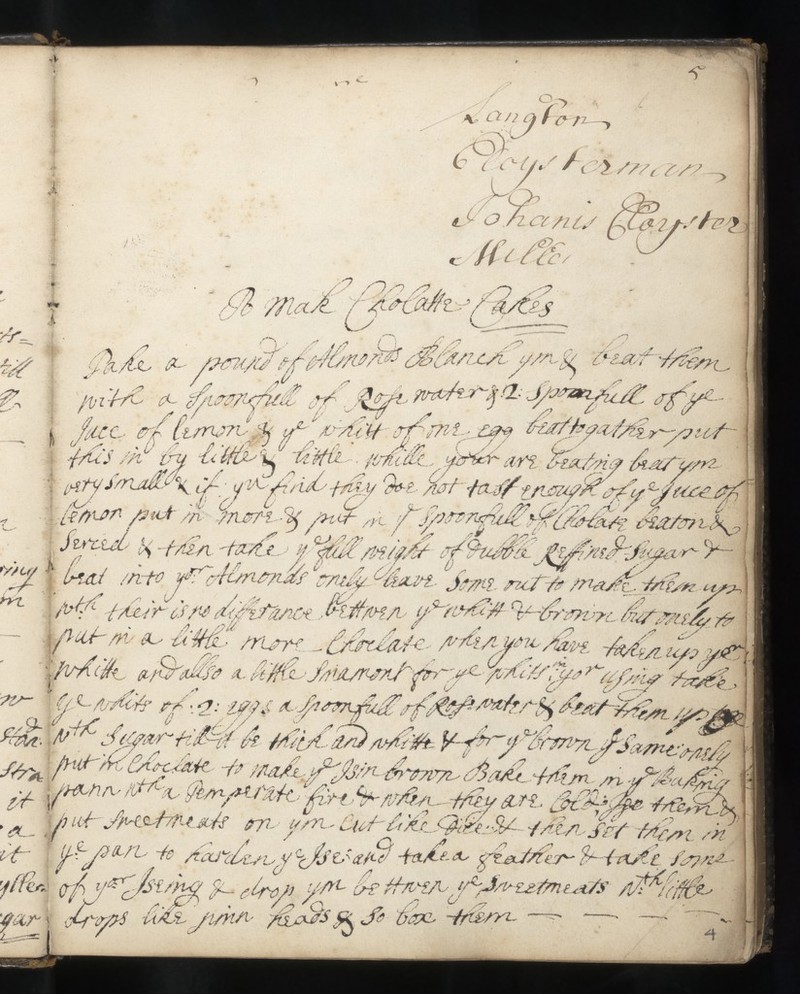 5
Langton
Cloysterman
Johanis Cloyster
Miller
To mak Cholatte Cakes
Take a pound of Almonds Blanch ym & beat them
with a Spoonfull of Rose water & 2: Spoonfull of ye
Juce of lemon & ye whitt of one egg beattogather put
this in by little & little while your are beating beat ym
very small & if yu find they doe not tast enough of ye Juce of
lemon put in more & put in ye Spoonfull of Cholate beaton &
Serced & then take ye full weight of dubble Reffined Sugar &
beat into yor Almonds onely leave Some out to make them up
wth their is no differance bettwen ye whitt & brown but onely to
put in a little more Choclate when you have taken up yor
whitte and allso a little Sinamont for ye whits yor ising take
ye whits of :2: eggs a spoonfull of Rosewater & beat them up
wth Sugar till it be thick and whitte & for ye brown ye Same onely
put in Choclate to make ye Isin brown Bake them in ye Baking
pann wth a Temperate fire & when they are Cold Ise them &
put sweetmeats on ym Cut like Dice & then Set them in
ye pan to harden ye Ise and take a feather & take some
of yor Iseing & drop ym bettwen ye Sweetmeats wth little
drops like pinn heads & So box them — — — —
4
till
ring
m
ow
Stra
it
a
it
gar